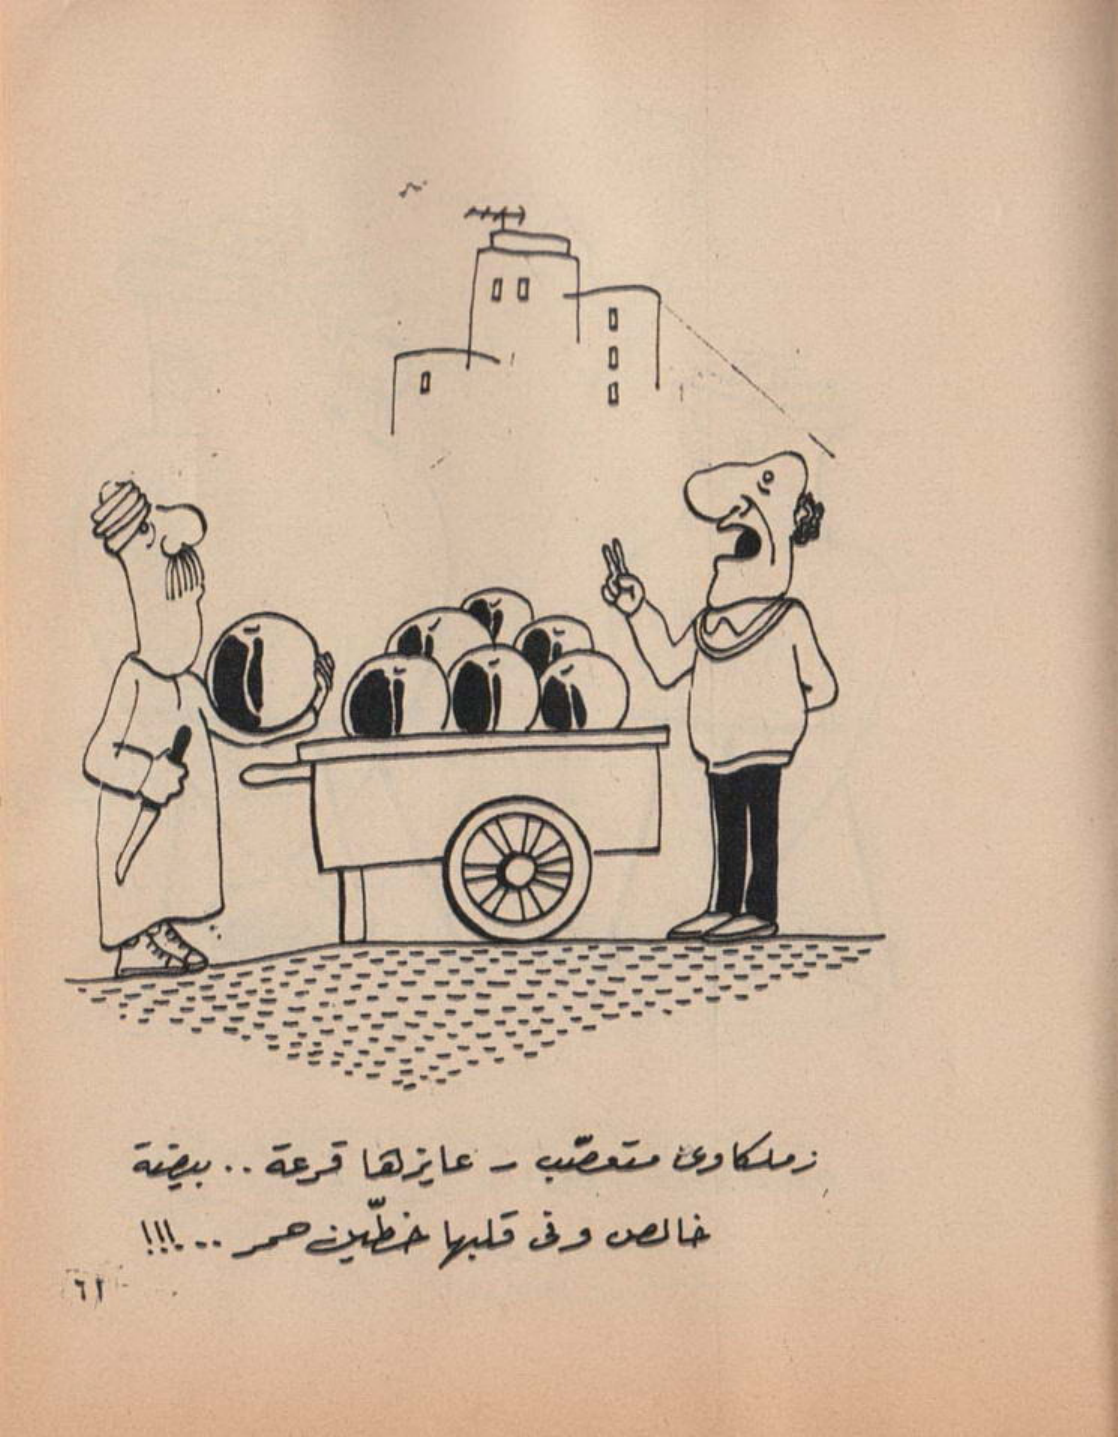 زملكاوى متعصّب - عايزها قرعة .. بيضة
خالص وفى قلبها خطّين حمر ...!!!
٦١